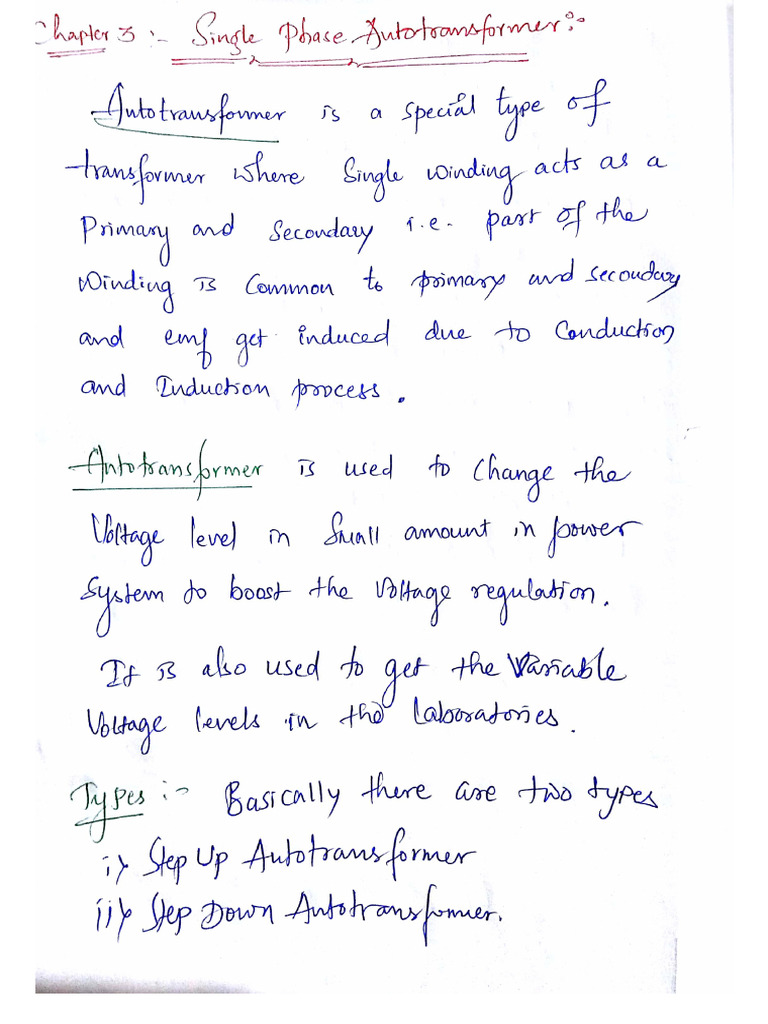 Chapter 3 :- Single Phase Autotransformer:-
Autotransformer is a special type of
transformer where Single winding acts as a
Primary and Secondary i.e. part of the
Winding is Common to primary and secondary
and emf get induced due to Conduction
and Induction process.
Autotransformer is used to change the
Voltage level in Small amount in power
System to boost the Voltage regulation.
It is also used to get the Variable
Voltage levels in the Laboratories.
Types :- Basically there are two types
i) Step Up Autotransformer
ii) Step Down Autotransformer.